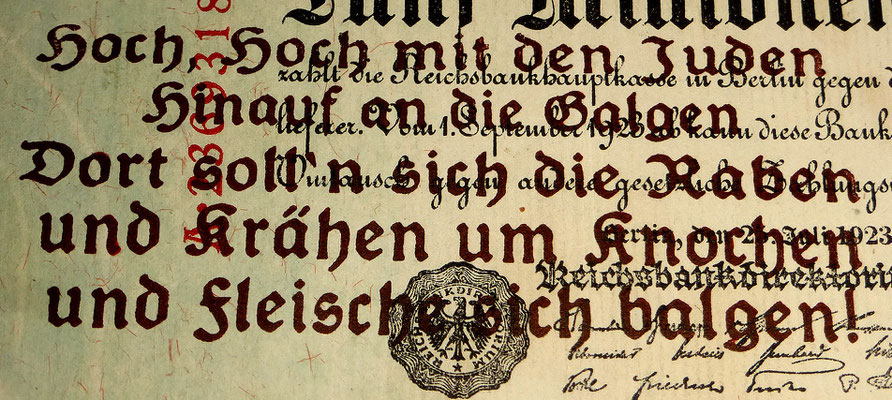 Fünf Millionen
Hoch, Hoch mit den Juden
zahlt die Reichsbankhauptkasse in Berlin gegen
Hinauf an die Galgen
lieferer. Vom 1. September 1923 ab kann diese Bank
Dort soll'n sich die Raben
Umtausch gegen andere gesetzliche Zahlungs
und Krähen um Knochen
Berlin, den 25. Juli 1923
Reichsbankdirektoriu
und Fleische sich balgen!